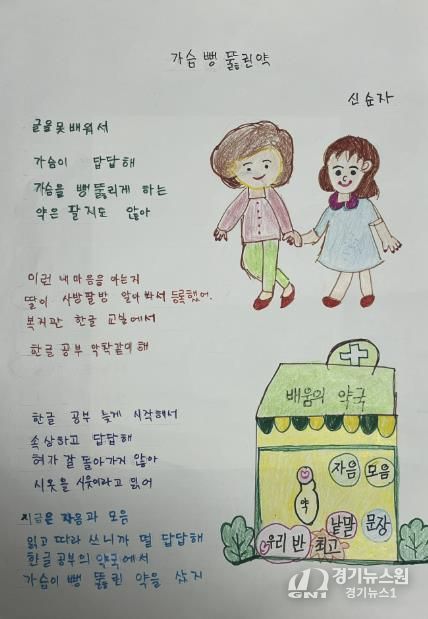 가슴 뻥 뚫린약
신순자
글을 못 배워서
가슴이 답답해
가슴을 뻥 뚫리게 하는
약은 팔지도 않아
이런 내 마음을 아는지
딸이 사방팔방 알아봐서 등록했어.
복지관 한글 교실에서
한글 공부 악착같이 해
한글 공부 늦게 시작해서
속상하고 답답해
혀가 잘 돌아가지 않아
시옷을 시옷이라고 읽어
지금은 자음과 모음
읽고 따라 쓰니까 덜 답답해
한글공부의 약국에서
가슴이 뻥 뚫린 약을 샀지
배움의 약국
자음 모음
약
낱말 문장
우리 반 최고
경기뉴스원
GN1 경기뉴스1